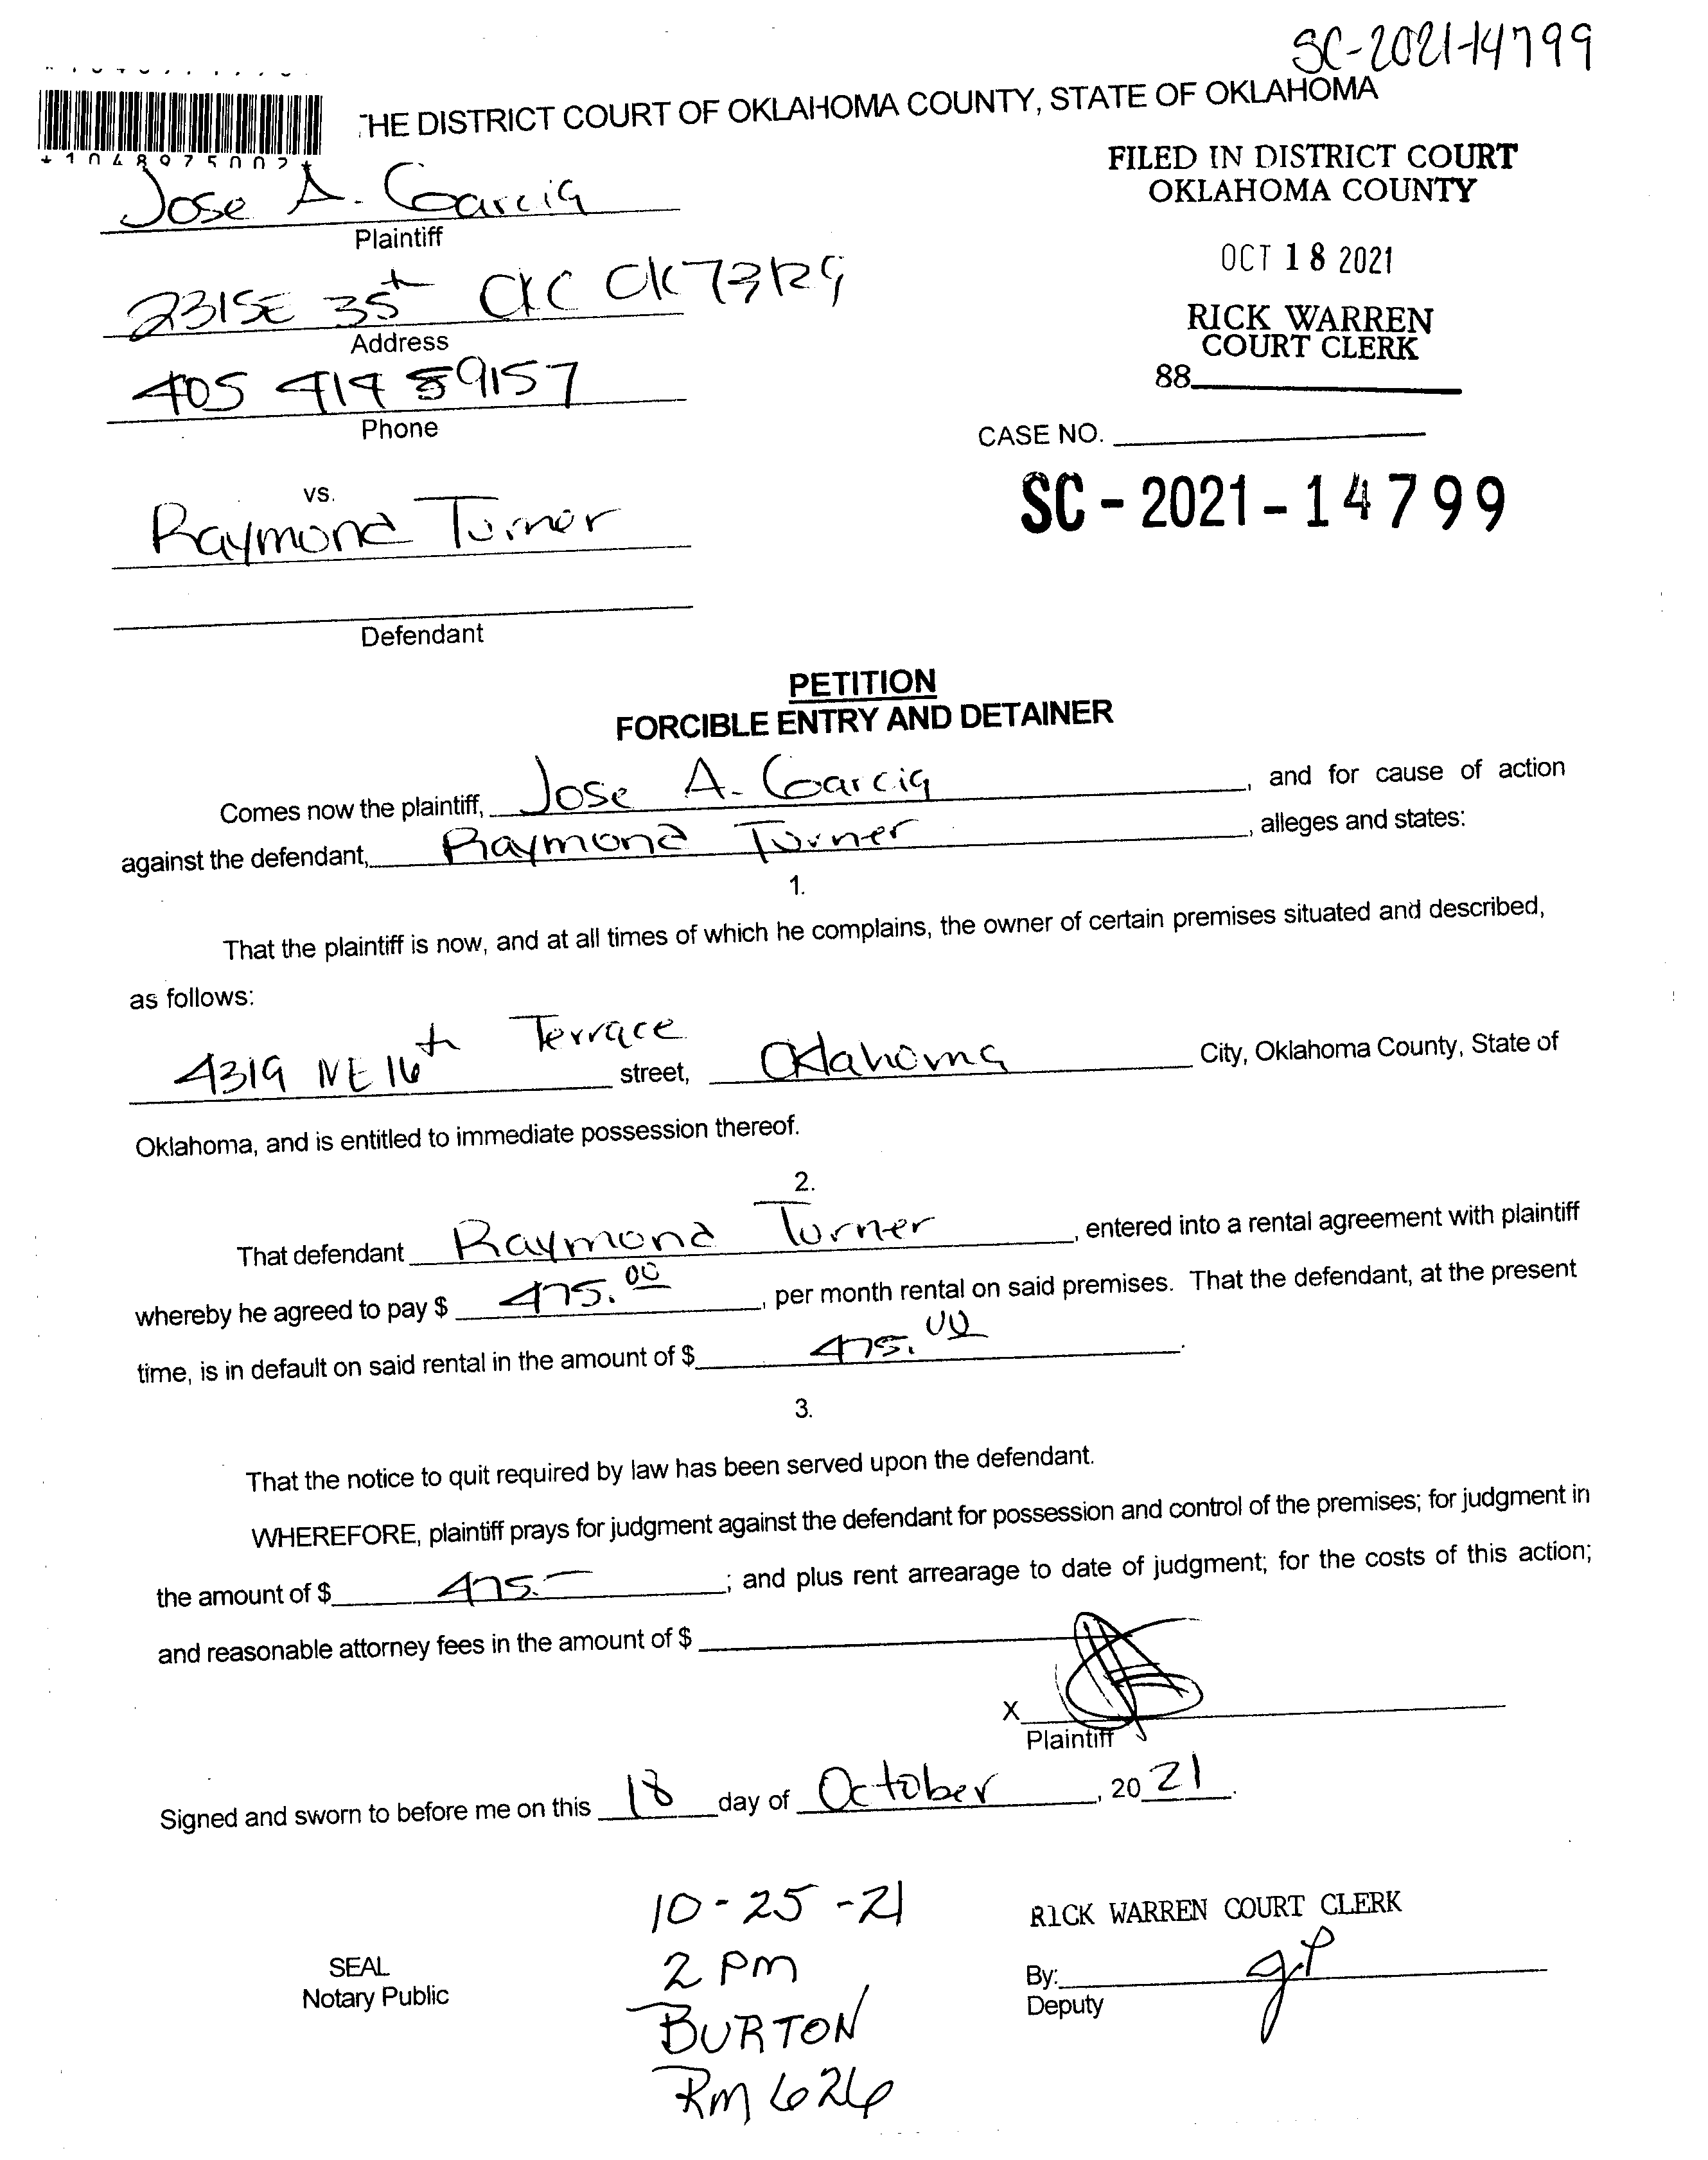 SC-2021-14799
THE DISTRICT COURT OF OKLAHOMA COUNTY, STATE OF OKLAHOMA
FILED IN DISTRICT COURT
OKLAHOMA COUNTY
OCT 18 2021
RICK WARREN
COURT CLERK
88
Jose A. Garcia
Plaintiff
231 SE 35th OKC OK 73129
Address
405 414 9157
Phone
CASE NO.
SC-2021-14799
vs.
Raymond Turner
Defendant
PETITION
FORCIBLE ENTRY AND DETAINER
Comes now the plaintiff, Jose A. Garcia, and for cause of action
against the defendant, Raymond Turner, alleges and states:
1.
That the plaintiff is now, and at all times of which he complains, the owner of certain premises situated and described,
as follows:
4319 NE 16th Terrace street, Oklahoma City, Oklahoma County, State of
Oklahoma, and is entitled to immediate possession thereof.
2.
That defendant Raymond Turner, entered into a rental agreement with plaintiff
whereby he agreed to pay $ 475.00, per month rental on said premises. That the defendant, at the present
time, is in default on said rental in the amount of $ 475.00.
3.
That the notice to quit required by law has been served upon the defendant.
WHEREFORE, plaintiff prays for judgment against the defendant for possession and control of the premises; for judgment in
the amount of $ 475.-; and plus rent arrearage to date of judgment; for the costs of this action;
and reasonable attorney fees in the amount of $
X
Plaintiff
Signed and sworn to before me on this 18 day of October, 2021.
10-25-21
2 pm
BURTON
Rm 626
SEAL
Notary Public
RICK WARREN COURT CLERK
By: JP
Deputy